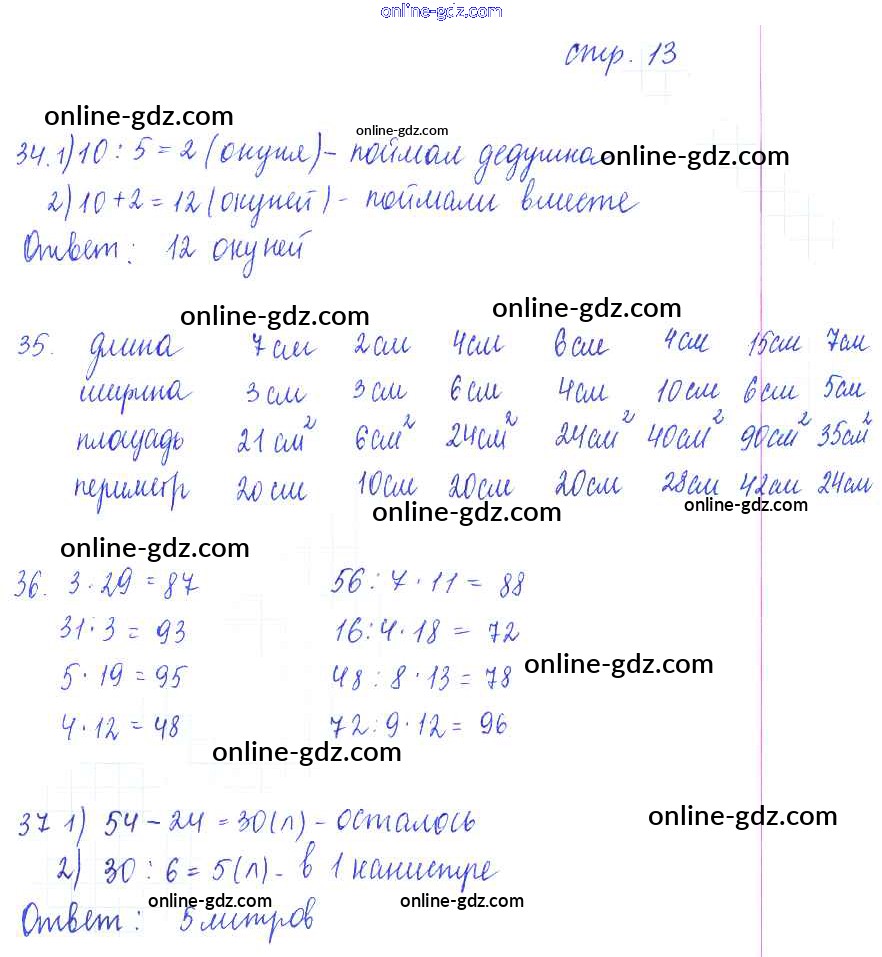 online-gdz.com
стр. 13
online-gdz.com
online-gdz.com
34. 1) 10 : 5 = 2 (окуня) - поймал дедушка
online-gdz.com
2) 10 + 2 = 12 (окуней) - поймали вместе
Ответ: 12 окуней
online-gdz.com online-gdz.com
35. длина 7 см 2 см 4 см 6 см 4 см 15 см 7 см
ширина 3 см 3 см 6 см 4 см 10 см 6 см 5 см
площадь 21 см² 6 см² 24 см² 24 см² 40 см² 90 см² 35 см²
периметр 20 см 10 см 20 см 20 см 28 см 42 см 24 см
online-gdz.com online-gdz.com
online-gdz.com
36. 3 · 29 = 87 56 : 7 · 11 = 88
31 · 3 = 93 16 : 4 · 18 = 72
online-gdz.com
5 · 19 = 95 48 : 8 · 13 = 78
4 · 12 = 48 72 : 9 · 12 = 96
online-gdz.com
online-gdz.com
37 1) 54 - 24 = 30 (л) - осталось
2) 30 : 6 = 5 (л) - в 1 канистре
online-gdz.com online-gdz.com
Ответ: 5 литров